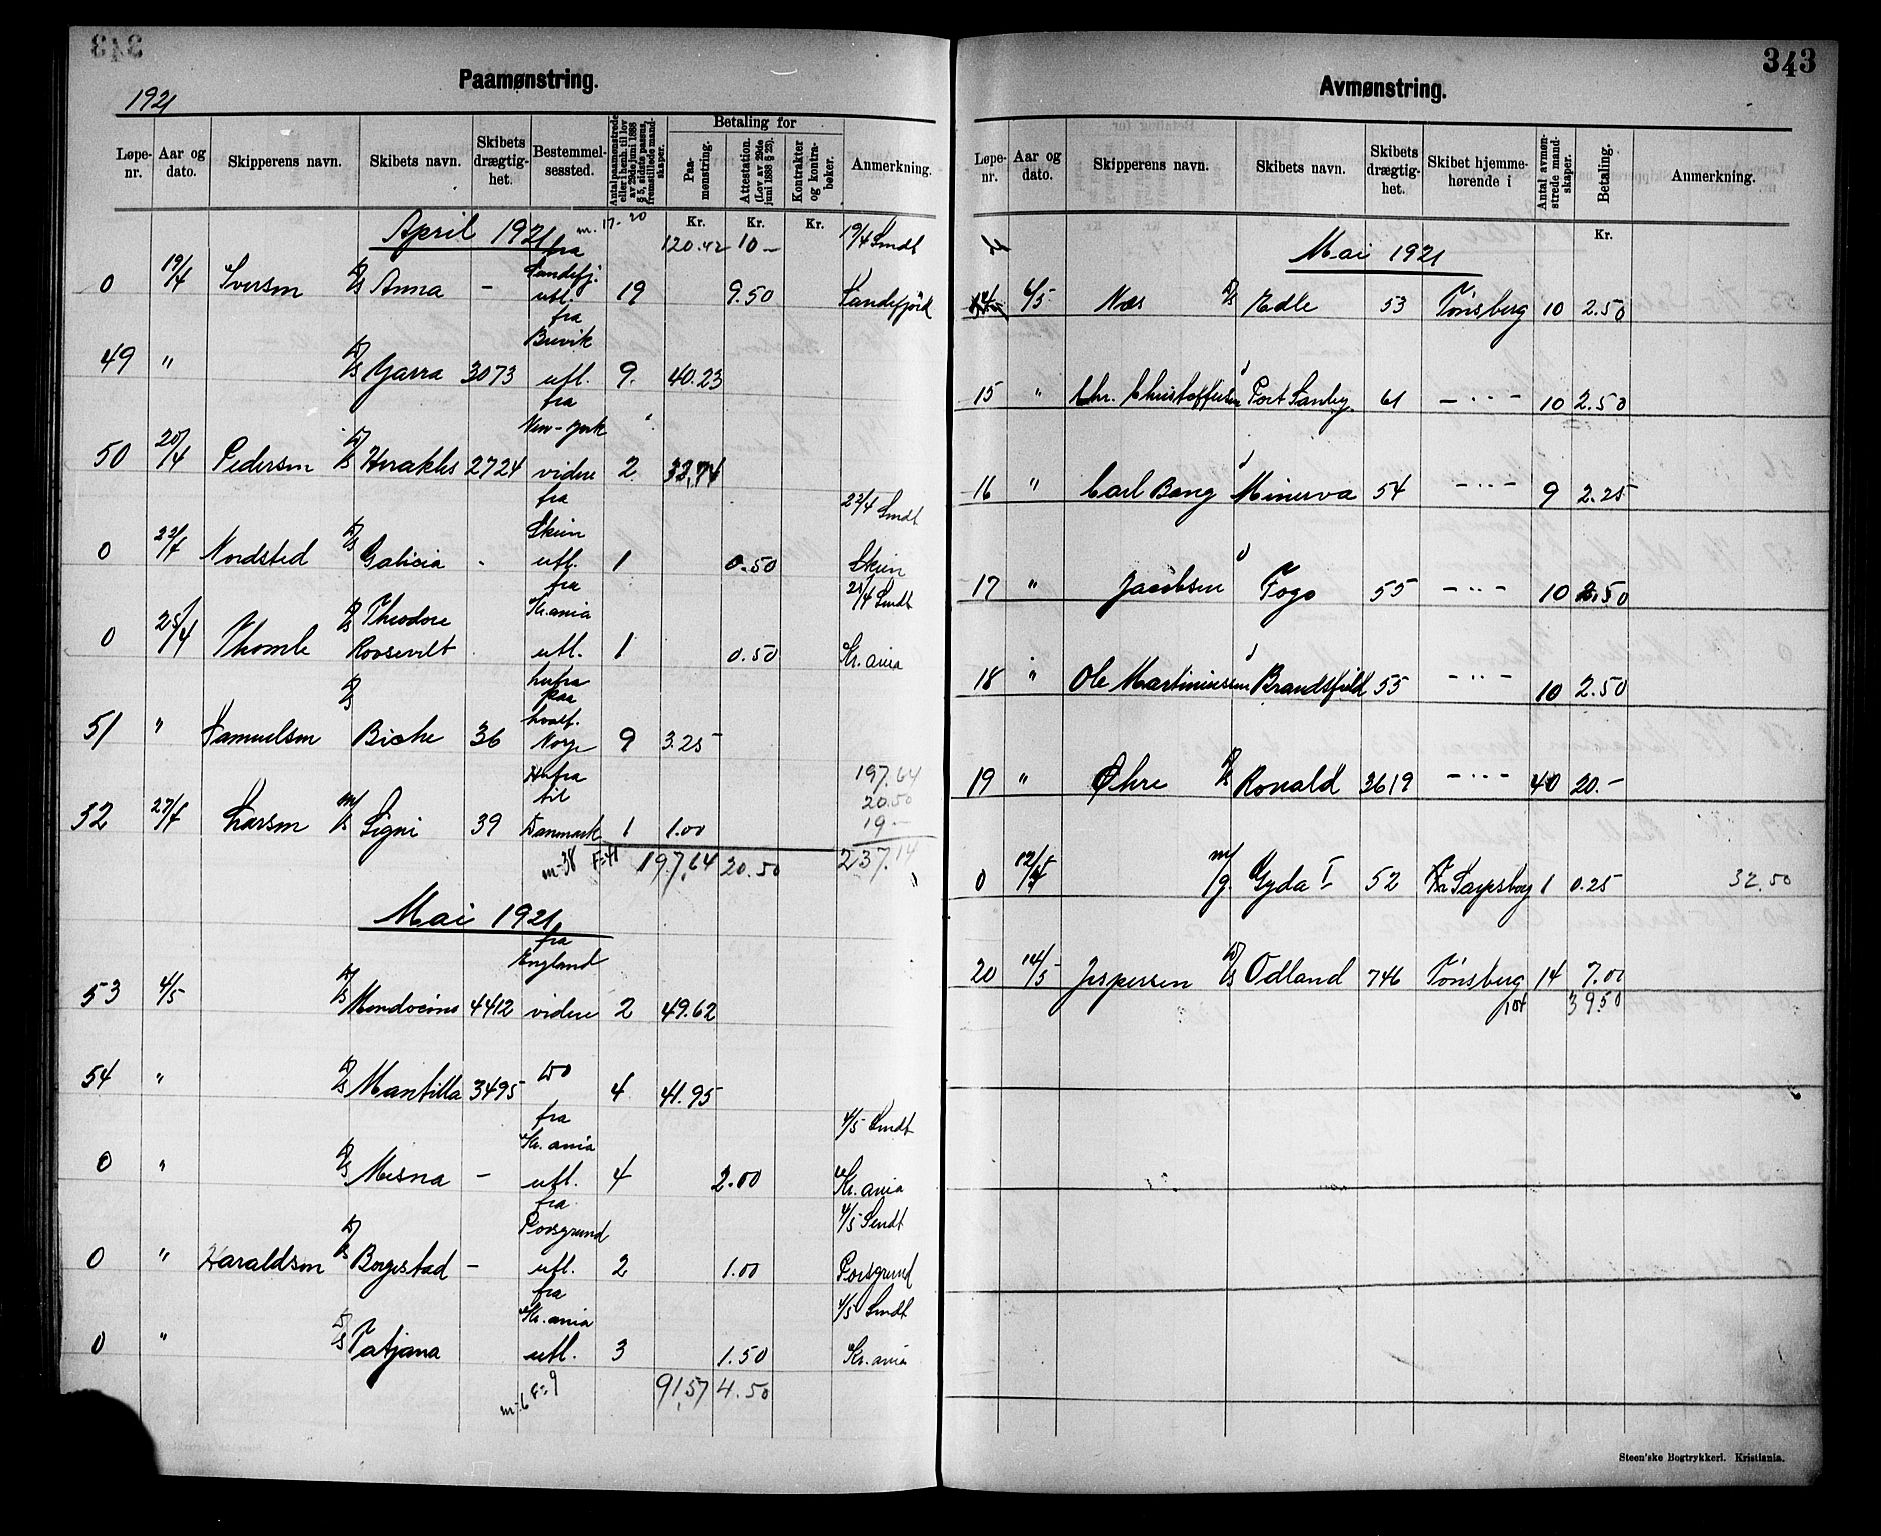 343
Paamønstring.
1921
Løpe-nr. Aar og dato. Skipperens navn. Skibets navn. Skibets drægtig-het. Bestemmel-sessted. Antal paamønstrede eller i henh. til lov av 29de juni 1888 § 5, sidste passus, fremstillede mand-skaper. Betaling for Paa-mønstring. Attestation. (Lov av 29de juni 1888 § 25). Kontrakter og kontra-bøker. Anmerkning.
Kr. Kr. Kr.
April 1921 m. 17- 20 120.42 10 — 19/4 Sendt
fra
Sandefj.
0 19/4 Iversen D/S Anna - utl. 19 9.50 Sandefjord
fra
Brevik
49 " D/S Yarra 3073 utl. 9. 40.23
fra
New-York
50 20/4 Pedersen D/S Herakles 2724 videre 2 32,74
fra 22/4 Sendt
Skien
0 22/4 Nordsted D/S Galicia - utl. 1 0.50 Skien
fra 25/4 Sendt
Kr.ania
0 25/4 D/S Theodore Roosevelt utl. 1 0.50 Kr.ania
herfra
paa
hvalf.
51 " Samuelsen D/S 36 Norge 9 3.25
Herfra 197.64
til 20.50
52 27/4 Larsen M/S Signi 39 Danmark 1 1.00 19 —
m-38 F=41 197,64 20.50 237.14
Mai 1921
fra
England
53 4/5 D/S 4412 videre 2 49.62
54 " D/S Mantilla 3495 Do 4 41.95
fra 4/5 Sendt
Kr.ania
0 " D/S Mesna - utl. 4 2.00 Kr.ania
fra 4/5 Sendt
Porsgrund
0 " Haraldsen D/S Borgestad - utl. 2 1.00 Porsgrund
fra 4/5 Sendt
Kr.ania
0 " D/S Tatjana utl. 3 1.50 Kr.ania
m-6 F=9 91,57 4.50
343
Avmønstring.
Løpe-nr. Aar og dato. Skipperens navn. Skibets navn. Skibets drægtig-het. Skibet hjemme-hørende i Antal avmøn-strede mand-skaper. Betaling. Anmerkning.
Kr.
Mai 1921
14 6/5 Næs D/S Edle 53 Tønsberg 10 2.50
15 " Chr. Christoffersen " Port Stanley 61 — " — 10 2.50
16 " Carl Bang " Minerva 54 — " — 9 2.25
17 " Jacobsen " Fogo 55 — " — 10 2.50
18 " Ole Martiniussen " Bransfield 55 — " — 10 2.50
19 " Øhre D/S Ronald 3619 — " — 40 20.—
0 M/g. Gyda I 52 Sarpsborg 1 0.25 32.50
20 14/5 Jespersen D/S Odland 746 Tønsberg 14 7.00
104 39.50
Steen'ske Bogtrykkeri. Kristiania.